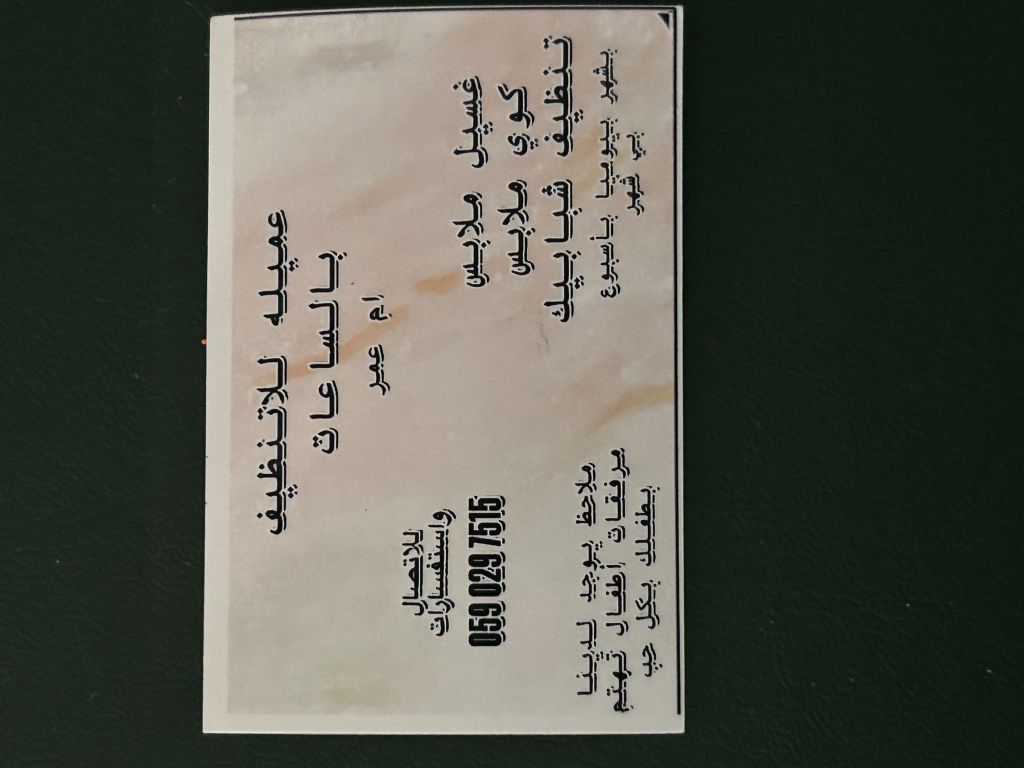 عميله للاتنظيف
بالساعات
ام عمر
للاتصال
واستفسارات
059 029 7515
غسيل ملابس
كوي ملابس
تنظيف شبابيك
بشهر بيوميا باسبوع
بي شهر
ملاحظ يوجد لدينا
مرفقات اطفال تهتم
بطفلك بكل حب